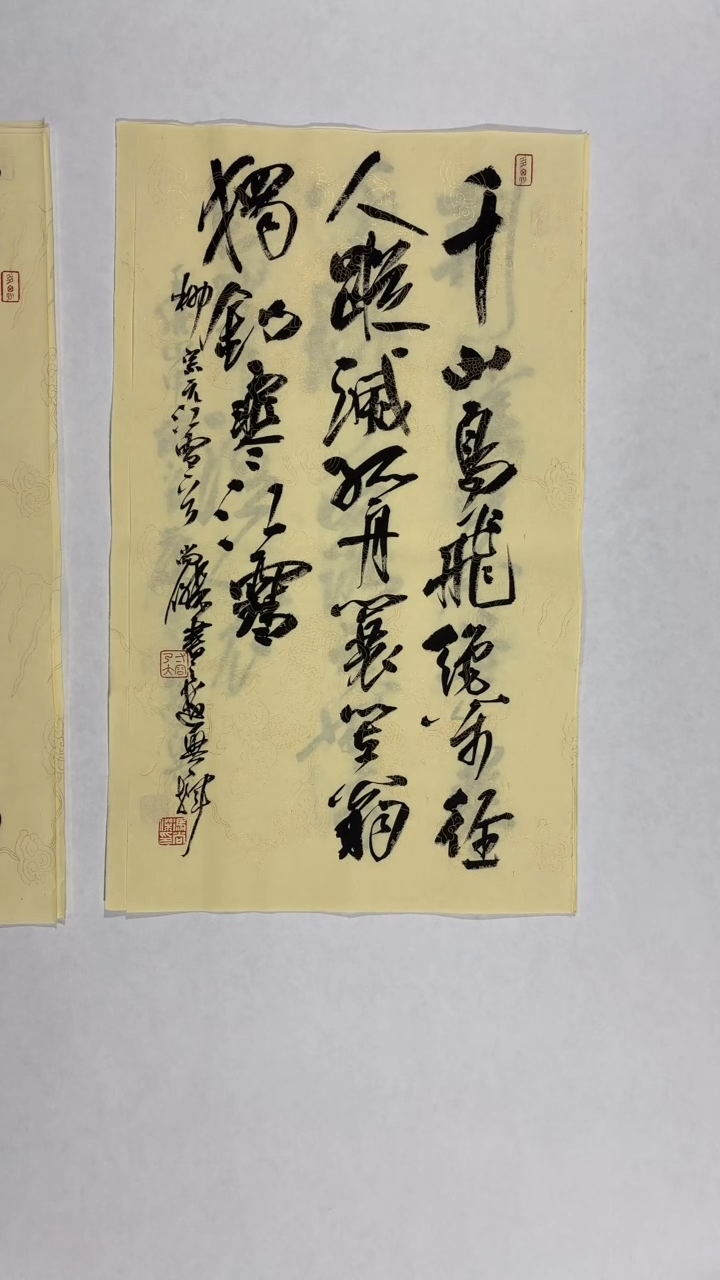 千山鳥飛絕萬徑
人蹤滅孤舟蓑笠翁
獨釣寒江雪
柳宗元江雪一首 尚 書